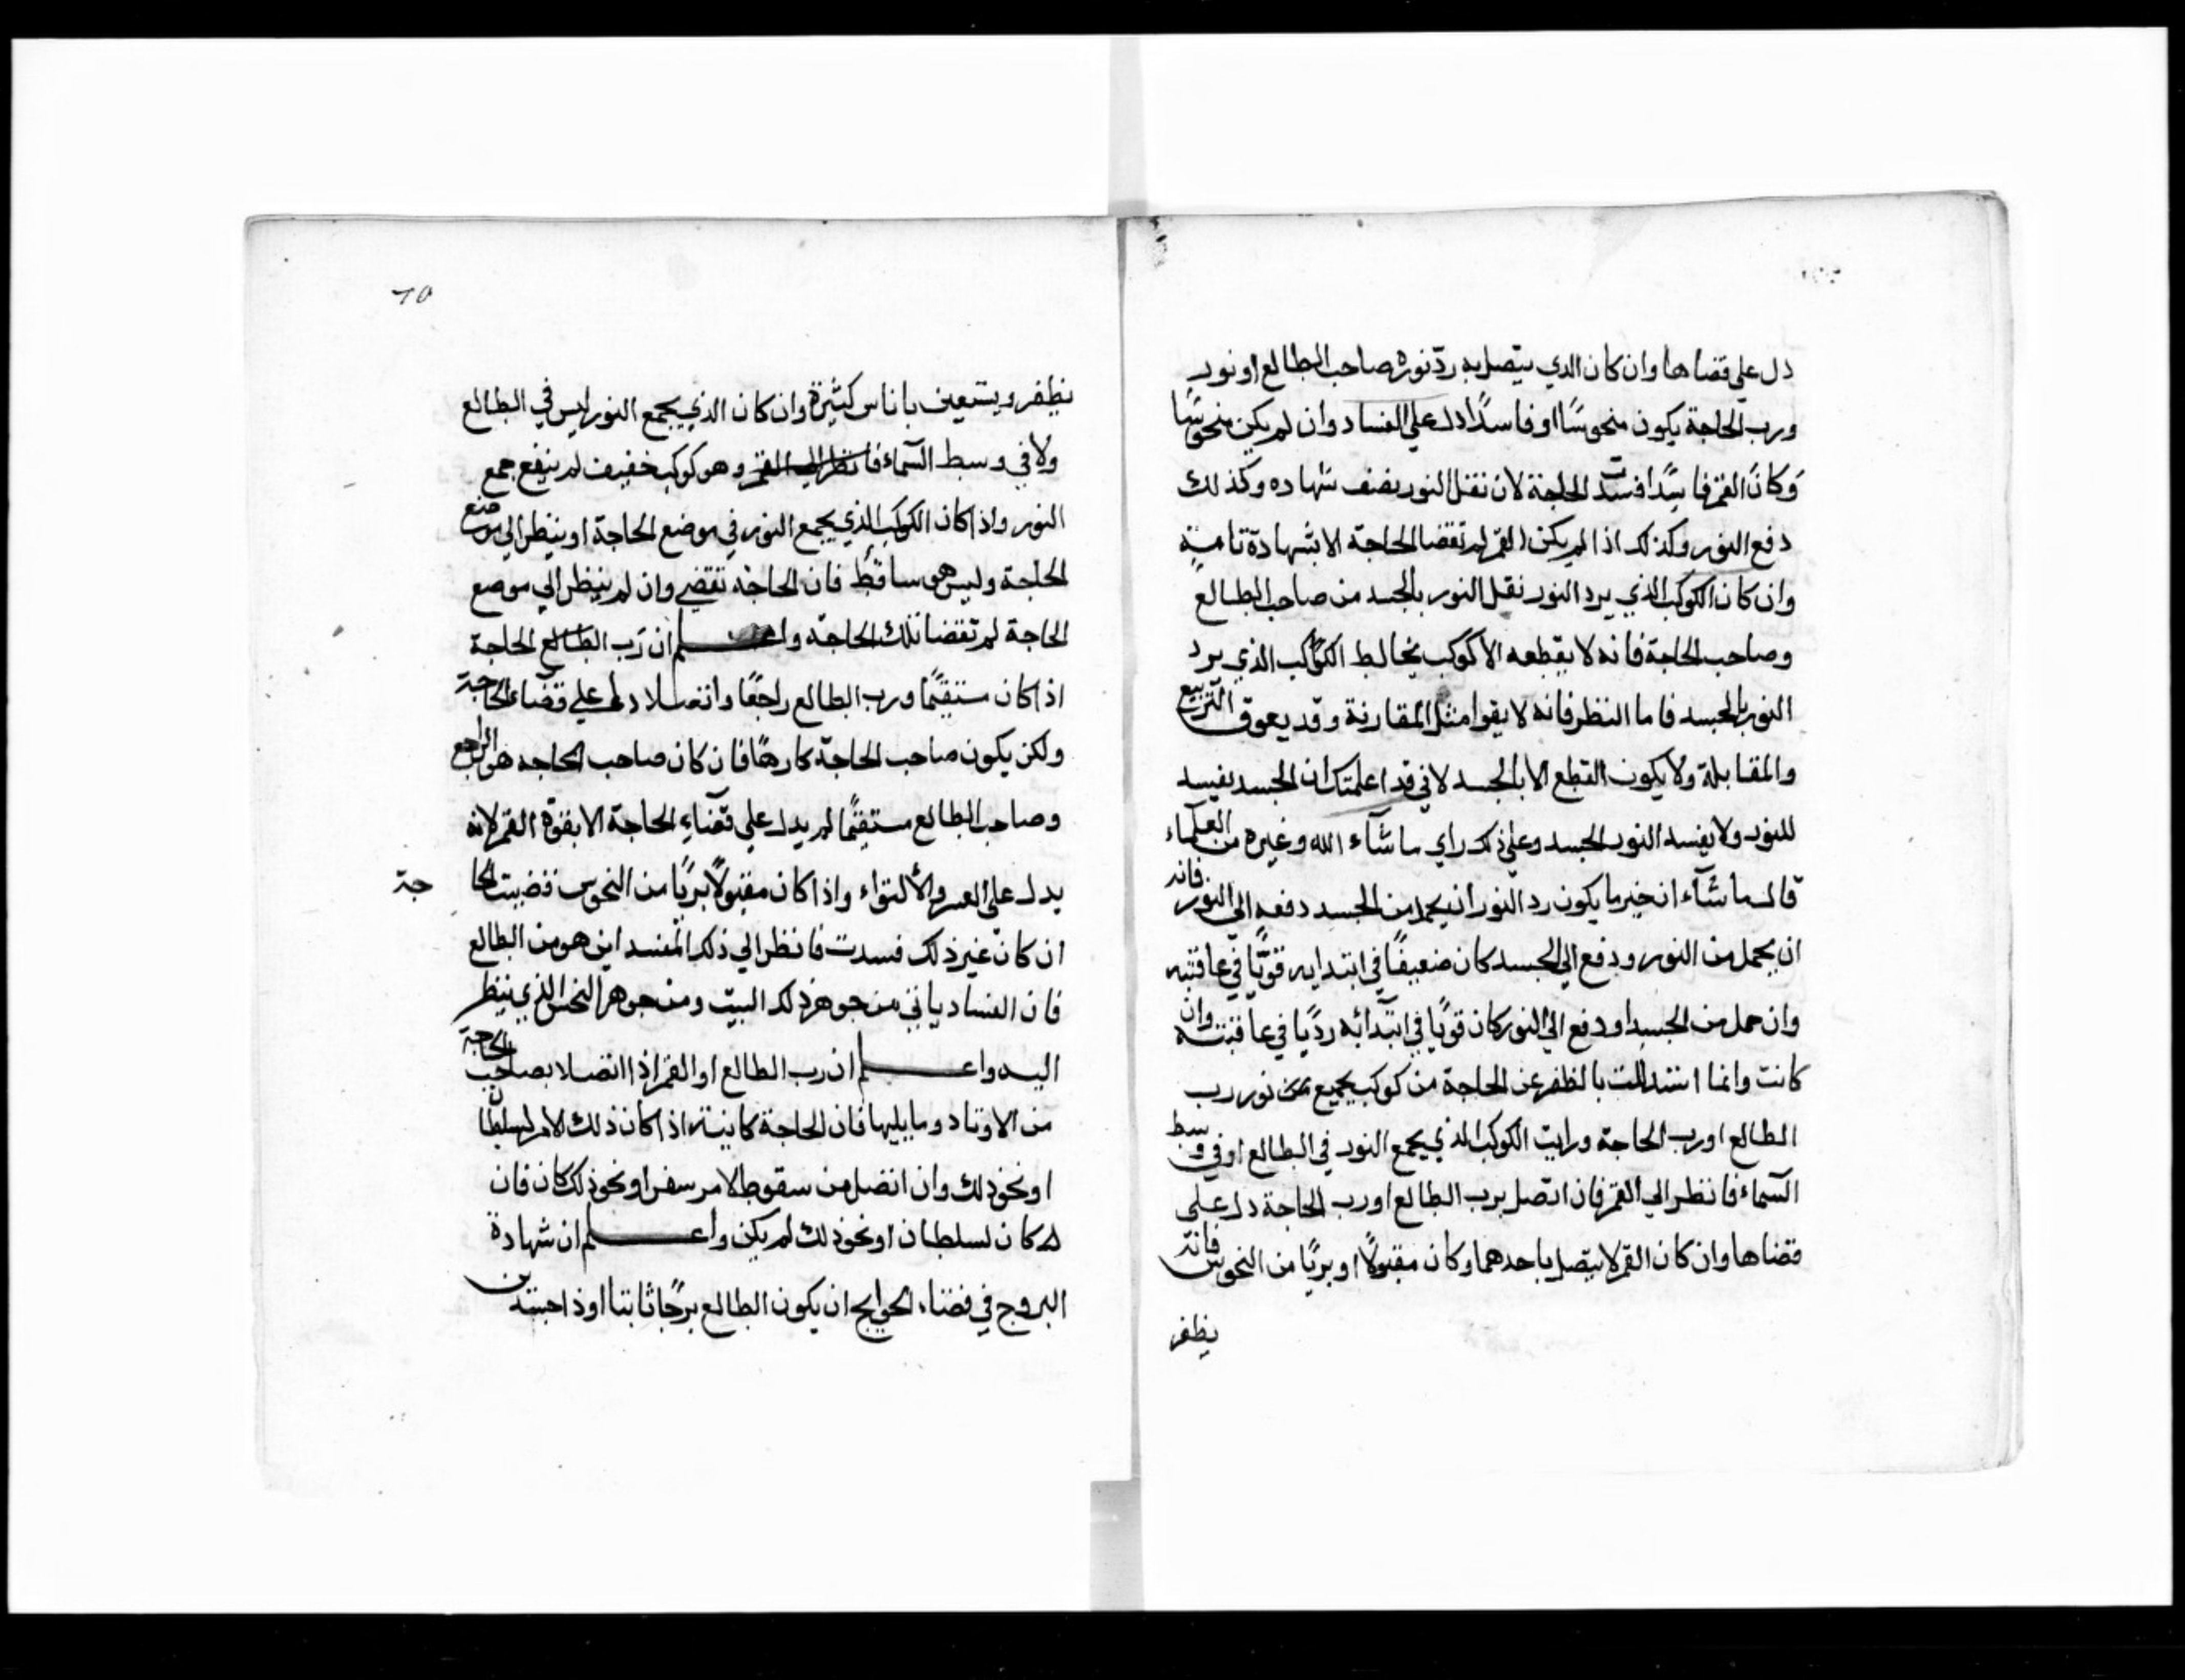 دل علي قضاها وان كان الدي يتصل به ردّ نوره صاحب الطالع او نور
ورب الحاجة يكون منحوسًا او فاسدًا دل علي الفساد وان لم يكن منحوسًا
وَكانَ القمر فاسِدًا افسدت الحاجة لان نقل النور نصف شهاده وكذلك
دفع النور وكذلك اذا لم يكن القمر لم تقضا الحاجة الا بشهادة تامة
وان كان الكوكب الذي يرد النور نقل النور بالجسد من صاحب الطالع
وصاحب الحاجة فانه لا يقطعه الا كوكب يخالط الكوكب الذي يرد
النور بالجسد فاما النظر فانه لا يقوا مثل المقارنة وقد يعوق التربيع
والمقابلة ولا يكون القطع الا بالجسد لاني قد اعلمتك ان الجسد يفسد
للنور ولا يفسد النور الجسد وعلي ذلك راي ما شآء الله وغيره من العلماء
قال ما شآء ان خير ما يكون رد النور ان يحمل من الجسد دفعه الي النور فانه
ان يحمل من النور ودفع الي الجسد كان ضعيفًا في ابتدايه قويًّا في عاقبته
وان حمل من الجسد او دفع الي النور كان قويًا في ابتدائه رديًا في عاقبته وان
كانت وانما استدللت بالظفر عن الحاجة من كوكب يجمع نور رب
الطالع او رب الحاجة ورايت الكوكب الذي يجمع النور في الطالع او في وسط
السماء فانظر الي القمر فان اتصل برب الطالع او رب الحاجة دل علي
قضاها وان كان القمر لا يتصل باحدهما وكان مقبولًا او بريًا من النحوس فانه
يظفر
يظفر ويستعين باناس كثيرة وان كان الذي يجمع النور ليس في الطالع
ولا في وسط السماء فانظر الي القمر وهو كوكب خفيف لم ينفع جمع
النور واذا كان الكوكب الذي يجمع النور في موضع الحاجة او ينظر الي موضع
الحاجة وليس هو ساقط فان الحاجة تقضي وان لم ينظر الي موضع
الحاجة لم تقضا تلك الحاجة واعلم ان رب الطالع الحاجة
اذا كان مستقيمًا ورب الطالع راجعًا واتصلا دلا علي قضاء الحاجة
ولكن يكون صاحب الحاجة كارهًا فان كان صاحب الحاجه هو الراجع
وصاحب الطالع مستقيمًا لم يدل علي قضاءِ الحاجة الا بقوة القمر لانه
يدل علي العسر والألتواء واذا كان مقبولًا بريًا من النحوس قضيت الحاجة
ان كان غير ذلك فسدت فانظر الي ذلك المفسد اين هو من الطالع
فان الفساد ياتي من جوهر ذلك البيت ومن جوهر النحس الذي ينظر
اليه واعلم ان رب الطالع او القمر اذا اتصلا بصاحب الحاجة
من الاوتاد وما يليها فان الحاجة كاينة اذا كان ذلك الامر لسلطان
او نحو ذلك وان اتصل من سقوط لامر سفر او نحو ذلك كان فان
كان لسلطان او نحو ذلك لم يكن واعلم ان شهادة
البروج في قضاء الحوايج ان يكون الطالع برجًا ثابتا او ذا جسدين